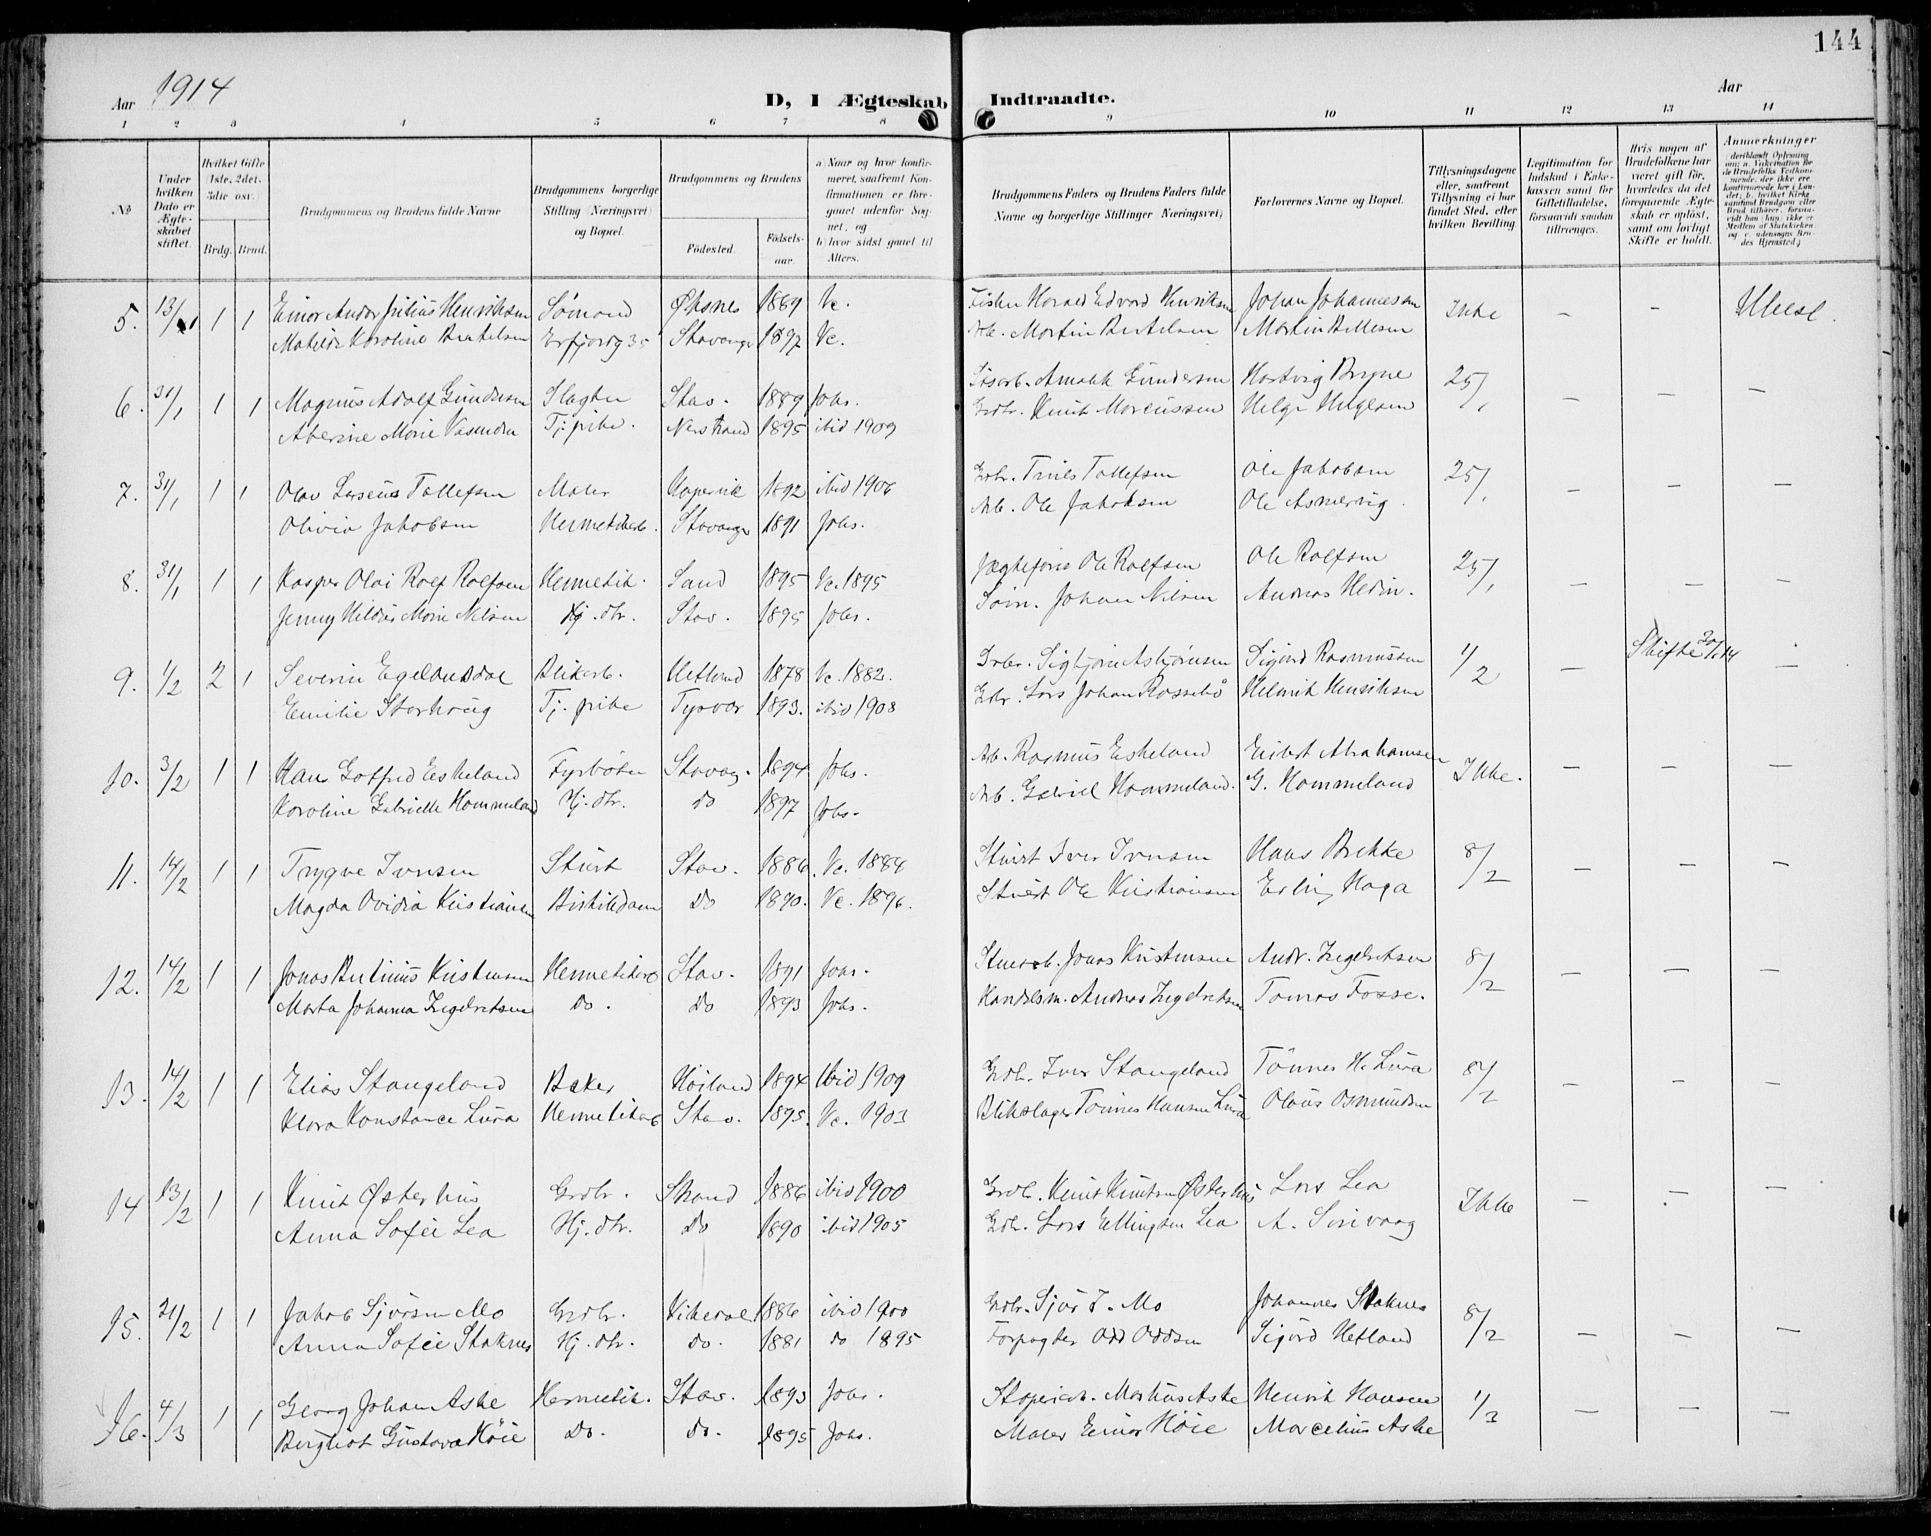 144
Aar 1914
D, I Ægteskab Indtraadte.
Aar
1 2 3 4 5 6 7 8 9 10 11 12 13 14
No
Under hvilken Dato er Ægteskabet stiftet.
Hvilket Gifte (1ste, 2det, 3die osv.)
Brdg. Brud.
Brudgommens og Brudens fulde Navne
Brudgommens borgerlige Stilling (Næringsvei) og Bopæl.
Brudgommens og Brudens
Fødested.
Fødselsaar.
a) Naar og hvor konfirmeret, saafremt Konfirmationen er foregaaet udenfor Sognet, og
b) hvor sidst gaaet til Alters.
Brudgommens Faders og Brudens Faders fulde Navne og borgerlige Stillinger (Næringsvei)
Forlovernes Navne og Bopæl.
Tillysningsdagene eller, saafremt Tillysning ei har fundet Sted, efter hvilken Bevilling.
Legitimation for Indskud i Enkekassen samt for Giftetilladelse, forsaavidt saadan tiltrænges.
Hvis nogen af Brudefolkene har været gift før, hvorledes da det foregaaende Ægteskab er opløst, samt om lovligt Skifte er holdt.
Anmærkninger
5. 13/1 1 1 Einar Andor Julius Henriksen Sømand Øksnes 1889 Vc. Fisker Harald Edvard Henriksen Johan Johannessen Ikke – –
Matilde Karoline Bertelsen Erfjordg 35 Stavanger 1892 Vc. Arb. Martin Bertelsen Martin Bertelsen
6. 31/1 1 1 Magnus Adolf Gundersen Slagter Stav. 1889 Johs. Amalik Gundersen Hartvig Bryne 25/1 – – –
Aberine Marie Tj. pike. Nerstrand 1895 ibid 1909 Grdbr. Knut Marcussen Helge Helgesen
7. 31/1 1 1 Olav Larsenius Tollefsen Maler Kopervik 1892 ibid 1906 Tollefsen Ole Jakobsen 25/1 – – –
Olivia Jakobsen Hermetikarb. Stavanger 1891 Johs. Arb. Ole Jakobsen Ole Asmervig.
8. 31/1 1 1 Kasper Olai Rolf Rolfsen Hermetik. Sand 1895 Vc. 1895 Jægtefører Ole Rolfsen Ole Rolfsen 25/1 – – –
Jenny Hildur Marie Nilsen Hj. dtr. Stav. 1895 Johs. Søm. Johan Nilsen Andreas Hedin.
9. 1/2 2 1 Severin Egelandsdal Blikarb. Hetland 1878 Vc. 1882. Sigbjørn Asbjørnsen Sigurd Rasmussen 1/2 – Skifte 20/1 14 –
Emilie Storhaug Tj. pike Tysvær 1893. ibid 1908 Lars Johan Rossebø Henrik Henriksen
10. 3/2 1 1 Hans Gotfred Eskeland Fyrbøter Stavag. 1894 Johs. Arb. Rasmus Eskeland Abrahamsen Ikke. – – –
Karoline Gabrielle Hommeland Hj. dtr. do 1897 Johs. Arb. Gabriel Hommeland. G. Hommeland
11. 14/2 1 1 Trygve Iversen Stuert Stav. 1886. Vc. 1884 Stuert Iver Iversen Hans Brekke 8/2 – – –
Magda Ovidia Kristiansen Butikkdame Do 1890. Vc. 1896. Stuert Ole Kristiansen Erling Haga
12. 14/2 1 1 Jonas Kristensen Hermetikarb Stav. 1891 Johs. Jonas Kristensen Andr. Ingebretsen 8/2 – – –
Marta Johanna Ingebretsen Do. Do 1893 Johs. Handelsm. Andreas Ingebretsen Tomas Fosse.
13. 14/2 1 1 Elias Stangeland Baker Høiland 1894 Ibid 1909 Grdb. Iver Stangeland Tønnes H. Lura 8/2 – – –
Klara Konstance Lura Hermetikarb Stav. 1895. Vc. 1903 Blikslager Tønnes Hansen Lura Olaus Osmundsen
14 13/2 1 1 Knut Østerhus Grdbr. Strand 1886 ibid 1900 Grdb. Knut Knutsen Østerhus Lars Lea Ikke – – –
Anna Sofie Lea Hj. dtr. Do 1890 ibid 1905 Gdbr. Lars Ellingsen Lea A. Surivaag
15. 21/2 1 1 Jakob Sjursen Mo Grdbr. Vikedal 1886 ibid 1900 Grdbr. Sjur J. Mo Johannes Staknes 8/2 – – –
Anna Sofie Staknes Hj. dtr. do. 1881 do 1895 Forpagter Odd Oddsen Sigurd Hetland
16. 4/3 1 1 Georg Johan Aske Hermetik. Stav. 1893 Johs. Støperiarb. Markus Aske Henrik Hansen 1/3 – – –
Bergliot Gustava Høie Do. Do. 1895 Johs. Maler Einar Høie Marcelius Aske